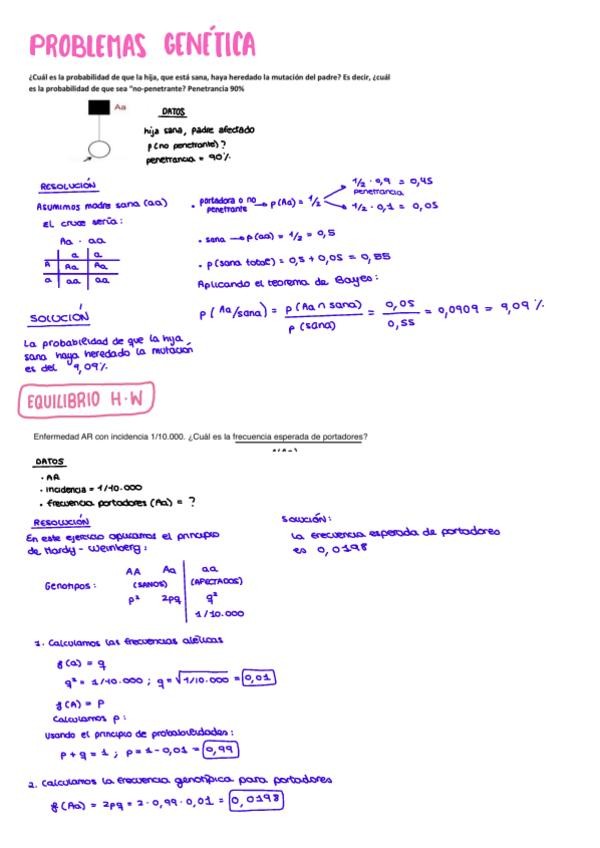 PROBLEMAS GENÉTICA
¿Cuál es la probabilidad de que la hija, que está sana, haya heredado la mutación del padre? Es decir, ¿cuál
es la probabilidad de que sea "no-penetrante? Penetrancia 90%
Aa
DATOS
hija sana, padre afectado
p(no penetrante)?
penetrancia = 90%
RESOLUCIÓN
Asumimos madre sana (aa)
El cruce sería:
Aa · aa
a a
A Aa Aa
a aa aa
• portadora o no penetrante → p(Aa) = 1/2
1/2 · 0,9 = 0,45
penetrancia
1/2 · 0,1 = 0,05
• sana → p(aa) = 1/2 = 0,5
• p(sana total) = 0,5 + 0,05 = 0,55
Aplicando el teorema de Bayes:
P(Aa/sana) = p(Aa ∩ sana) / p(sana) = 0,05 / 0,55 = 0,0909 = 9,09%
SOLUCIÓN
La probabilidad de que la hija
sana haya heredado la mutación
es del 9,09%
EQUILIBRIO H·W
Enfermedad AR con incidencia 1/10.000. ¿Cuál es la frecuencia esperada de portadores?
DATOS
· AR
· incidencia = 1/10.000
· frecuencia portadores (Aa) = ?
RESOLUCIÓN
En este ejercicio aplicamos el principio
de Hardy-Weinberg:
AA Aa aa
Genotipos: (SANOS) (AFECTADOS)
p² 2pq q²
1/10.000
1. Calculamos las frecuencias alélicas
f(a) = q
q² = 1/10.000 ; q = √1/10.000 = 0,01
f(A) = P
Calculamos p:
Usando el principio de probabilidades:
P + q = 1 ; p = 1 - 0,01 = 0,99
2. Calculamos la frecuencia genotípica para portadores
f(Aa) = 2pq = 2 · 0,99 · 0,01 = 0,0198
SOLUCIÓN:
La frecuencia esperada de portadores
es 0,0198